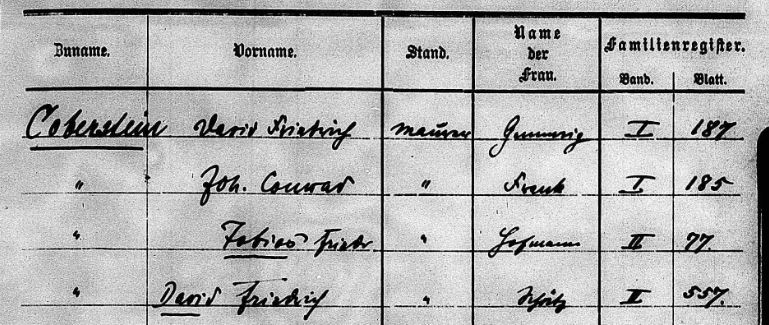 Zuname. Vorname. Stand. Name der Frau. Familienregister. Band. Blatt.
Coberstein David Friedrich Maurer I 187
" Joh. Conrad " Frank I 185
" Tobias Friedr " Hofmann II 77.
" David Friedrich " Schütz II 557.